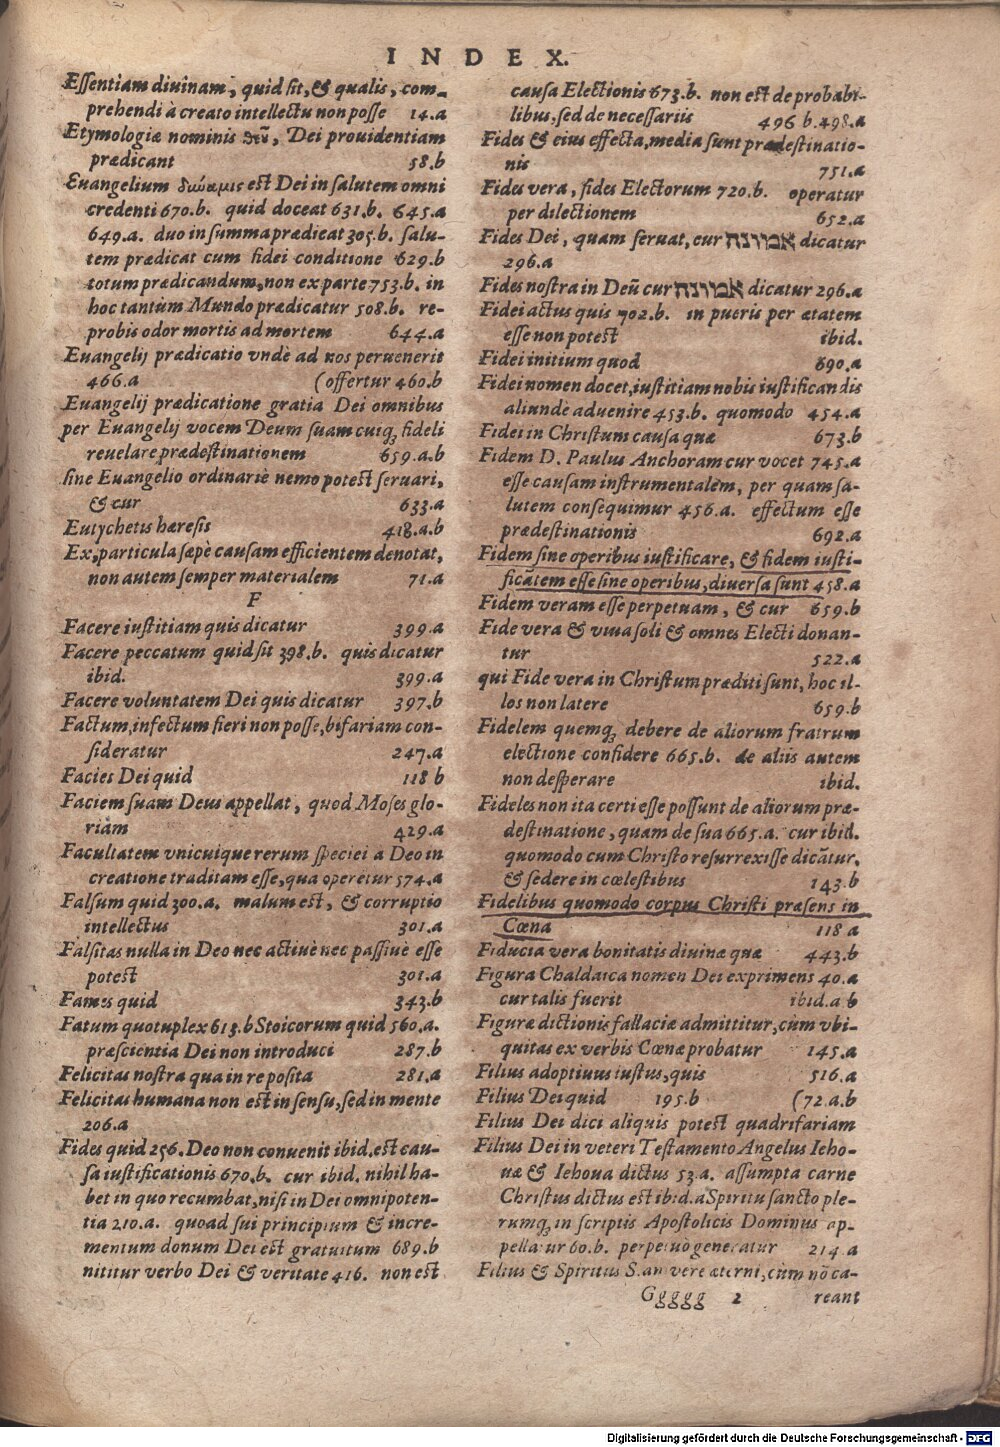 INDEX.
Eſſentiam diuinam, quid ſit, & qualis, com-
prehendi à creato intellectu non poſſe 14.a
Etymologiæ nominis θεῦ, Dei prouidentiam
prædicant 58.b
Euangelium δύναμις est Dei in ſalutem omni
credenti 670.b. quid doceat 631.b. 645.a
649.a. duo in summa prædicat 305.b. ſalu-
tem prædicat cum fidei conditione 629.b
totum prædicandum, non ex parte 753.b. in
hoc tantùm Mundo prædicatur 508.b. re-
probis odor mortis ad mortem 644.a
Euangelij prædicatio vndè ad nos peruenerit
466.a (offertur 460.b
Euangelij prædicatione gratia Dei omnibus
per Euangelij vocem Deum ſuam cuiq; fideli
reuelare prædestinationem 659.a.b
ſine Euangelio ordinariè nemo potest ſeruari,
& cur 633.a
Eutychetis hæreſis 418.a.b
Ex, particula ſæpè cauſam efficientem denotat,
non autem ſemper materialem 71.a
F
Facere iustitiam quis dicatur 399.a
Facere peccatum quid ſit 398.b. quis dicatur
ibid. 399.a
Facere voluntatem Dei quis dicatur 397.b
Factum, infectum fieri non poſſe, bifariam con-
ſideratur 247.a
Facies Dei quid 118 b
Faciem ſuam Deus appellat, quod Moſes glo-
riàm 429.a
Facultatem vnicuique rerum ſpeciei à Deo in
creatione traditam eſſe, qua operetur 574.a
Falſum quid 300.a. malum est, & corruptio
intellectus 301.a
Falſitas nulla in Deo nec actiuè nec paſſiuè eſſe
potest 301.a
Fames quid 343.b
Fatum quotuplex 613.b Stoicorum quid 560.a.
præſcientia Dei non introduci 287.b
Felicitas nostra qua in re poſita 281.a
Felicitas humana non est in ſenſu, ſed in mente
206.a
Fides quid 256. Deo non conuenit ibid. est cau-
ſa iustificationis 670.b. cur ibid. nihil ha-
bet in quo recumbat, niſi in Dei omnipoten-
tia 210.a. quoad ſui principium & incre-
mentum donum Dei est gratuitum 689.b
nititur verbo Dei & veritate 416. non est
cauſa Electionis 673.b. non est de probabi-
libus, ſed de neceſſariis 496 b. 498.a
Fides & eius effecta, media ſunt prædestinatio-
nis 751.a
Fides vera, fides Electorum 720.b. operatur
per dilectionem 652.a
Fides Dei, quam ſeruat, cur אמונה dicatur
296.a
Fides nostra in Deū cur אמונה dicatur 296.a
Fidei actus quis 702.b. in pueris per ætatem
eſſe non potest ibid.
Fidei initium quod 690.a
Fidei nomen docet, iustitiam nobis iustificandis
aliundè aduenire 453.b. quomodo 454.a
Fidei in Christum cauſa quæ 673.b
Fidem D. Paulus Anchoram cur vocet 745.a
eſſe cauſam instrumentalem, per quam ſa-
lutem conſequimur 456.a. effectum eſſe
prædestinationis 692.a
Fidem ſine operibus iustificare, & fidem iusti-
ficātem eſſe ſine operibus, diuerſa ſunt 458.a
Fidem veram eſſe perpetuam, & cur 659.b
Fide vera & viua ſoli & omnes Electi donan-
tur 522.a
qui Fide vera in Christum præditi ſunt, hoc il-
los non latere 659.b
Fidelem quemq; debere de aliorum fratrum
electione confidere 665.b. de aliis autem
non deſperare ibid.
Fideles non ita certi eſſe poſſunt de aliorum præ-
destinatione, quam de ſua 665.a. cur ibid.
quomodo cum Christo reſurrexiſſe dicātur,
& ſedere in cœlestibus 143.b
Fidelibus quomodo corpus Christi præſens in
Cœna 118 a
Fiducia vera bonitatis diuinæ quæ 443.b
Figura Chaldaica nomen Dei exprimens 40.a
cur talis fuerit ibid.a b
Figuræ dictionis fallaciæ admittitur, cùm vbi-
quitas ex verbis Cœnæ probatur 145.a
Filius adoptiuus iustus, quis 516.a
Filius Dei quid 195.b (72.a.b
Filius Dei dici aliquis potest quadrifariam
Filius Dei in veteri Testamento Angelus Ieho-
uæ & Iehoua dictus 53.a. aſſumpta carne
Christus dictus est ibid. a Spiritu ſancto ple-
rumq; in ſcriptis Apostolicis Dominus ap-
pellatur 60.b. perpetuò generatur 214.a
Filius & Spiritus S. an verè æterni, cùm nō ca-
Ggggg 2 reant
Digitalisierung gefördert durch die Deutsche Forschungsgemeinschaft - DFG